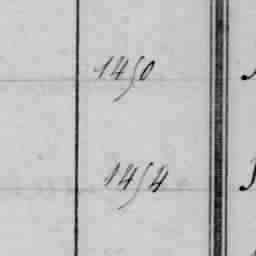 1450
1454